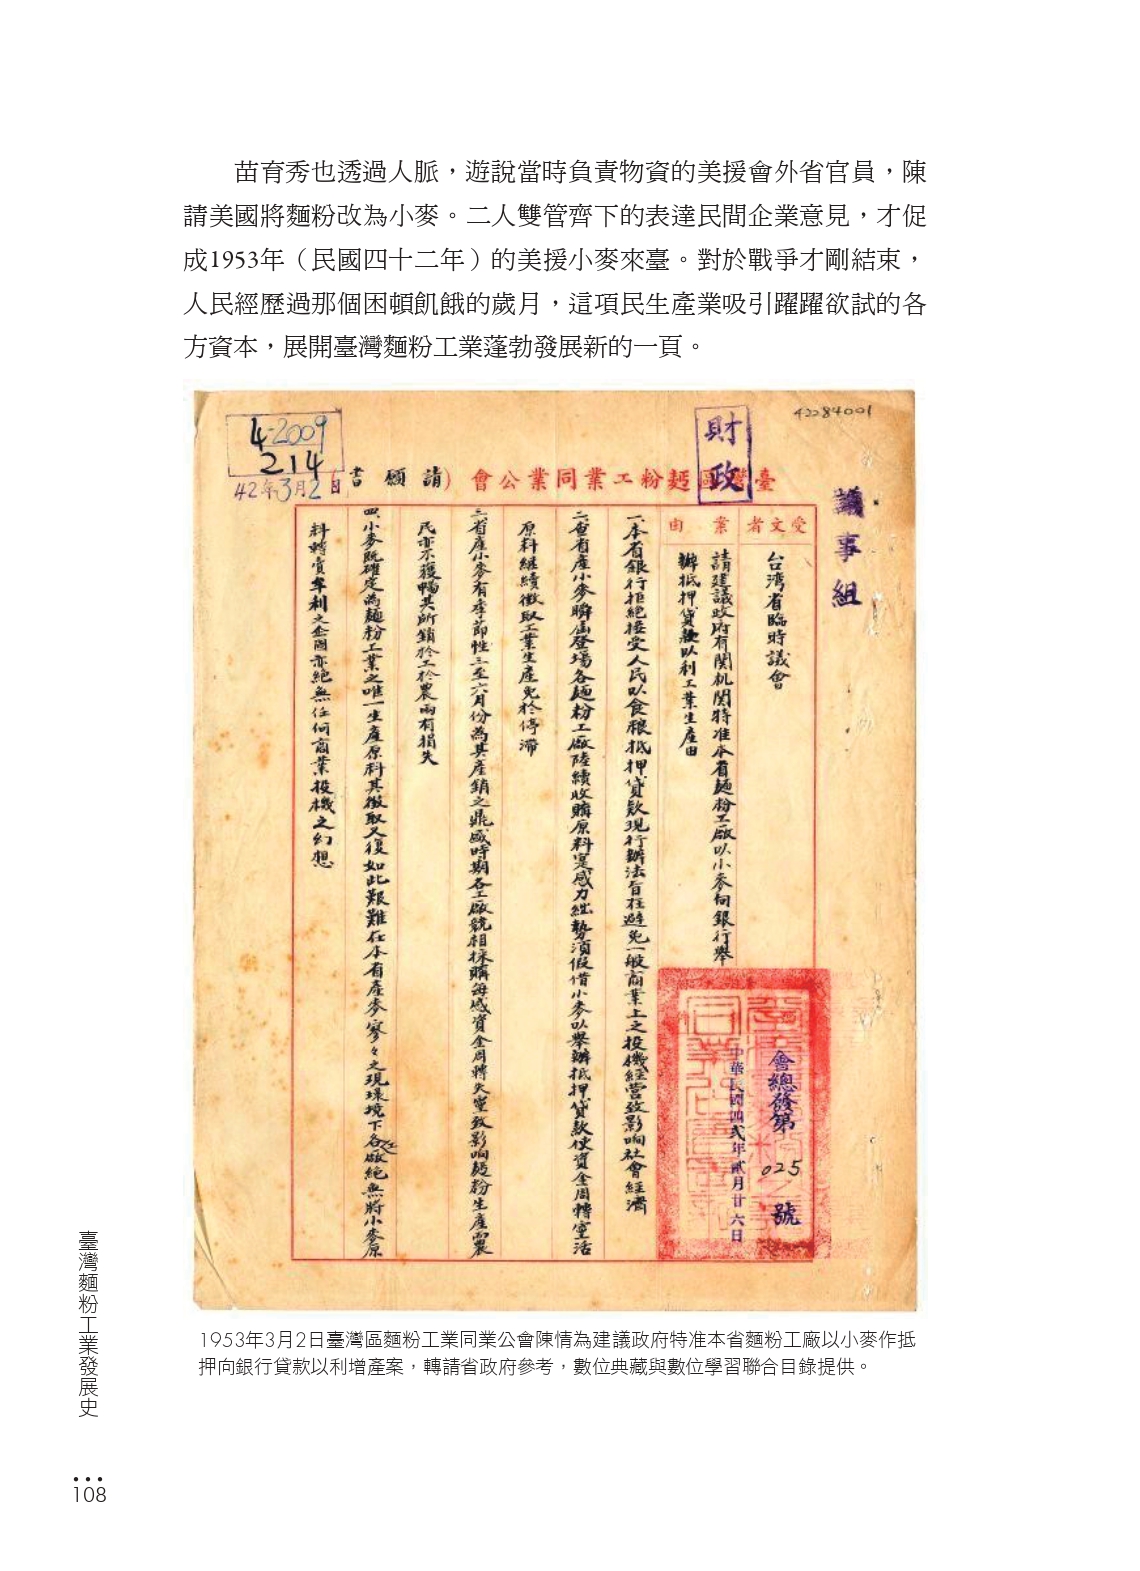 苗育秀也透過人脈，遊說當時負責物資的美援會外省官員，陳
請美國將麵粉改為小麥。二人雙管齊下的表達民間企業意見，才促
成1953年（民國四十二年）的美援小麥來臺。對於戰爭才剛結束，
人民經歷過那個困頓飢餓的歲月，這項民生產業吸引躍躍欲試的各
方資本，展開臺灣麵粉工業蓬勃發展新的一頁。
4-2009
214
42年3月2日
財政
42284001
臺灣區麵粉工業同業公會（請願書）
議事組
受文者
台湾省臨時議會
案由
請建議政府有関机関特准本省麵粉工廠以小麥向銀行舉
辦抵押貸款以利工業生產由
一、本省銀行拒絕接受人民以食粮抵押貸款現行辦法旨在避免一般商業上之投機經營致影响社會經濟
二、查省產小麥瞬屆登場各麵粉工廠陸續收購原料寔感力絀勢須假借小麥以舉辦抵押貸款使資金周轉寔活
原料繼續徵取工業生產免於停滯
三、省產小麥有季節性三至六月份為其產銷之鼎盛時期各工廠競相採購每感資金周轉失寔致影响麵粉生產而農
民亦不獲暢其所銷於工於農兩有損失
四、小麥既確定為麵粉工業之唯一生產原料其徵取又復如此艱難在本省產麥寥々之現環境下各廠絕無將小麥原
料轉賣牟利之企圖亦絕無任何商業投機之幻想
會總發第025號
中華民國四貳年貳月廿六日
1953年3月2日臺灣區麵粉工業同業公會陳情為建議政府特准本省麵粉工廠以小麥作抵
押向銀行貸款以利增產案，轉請省政府參考，數位典藏與數位學習聯合目錄提供。
臺灣麵粉工業發展史
108